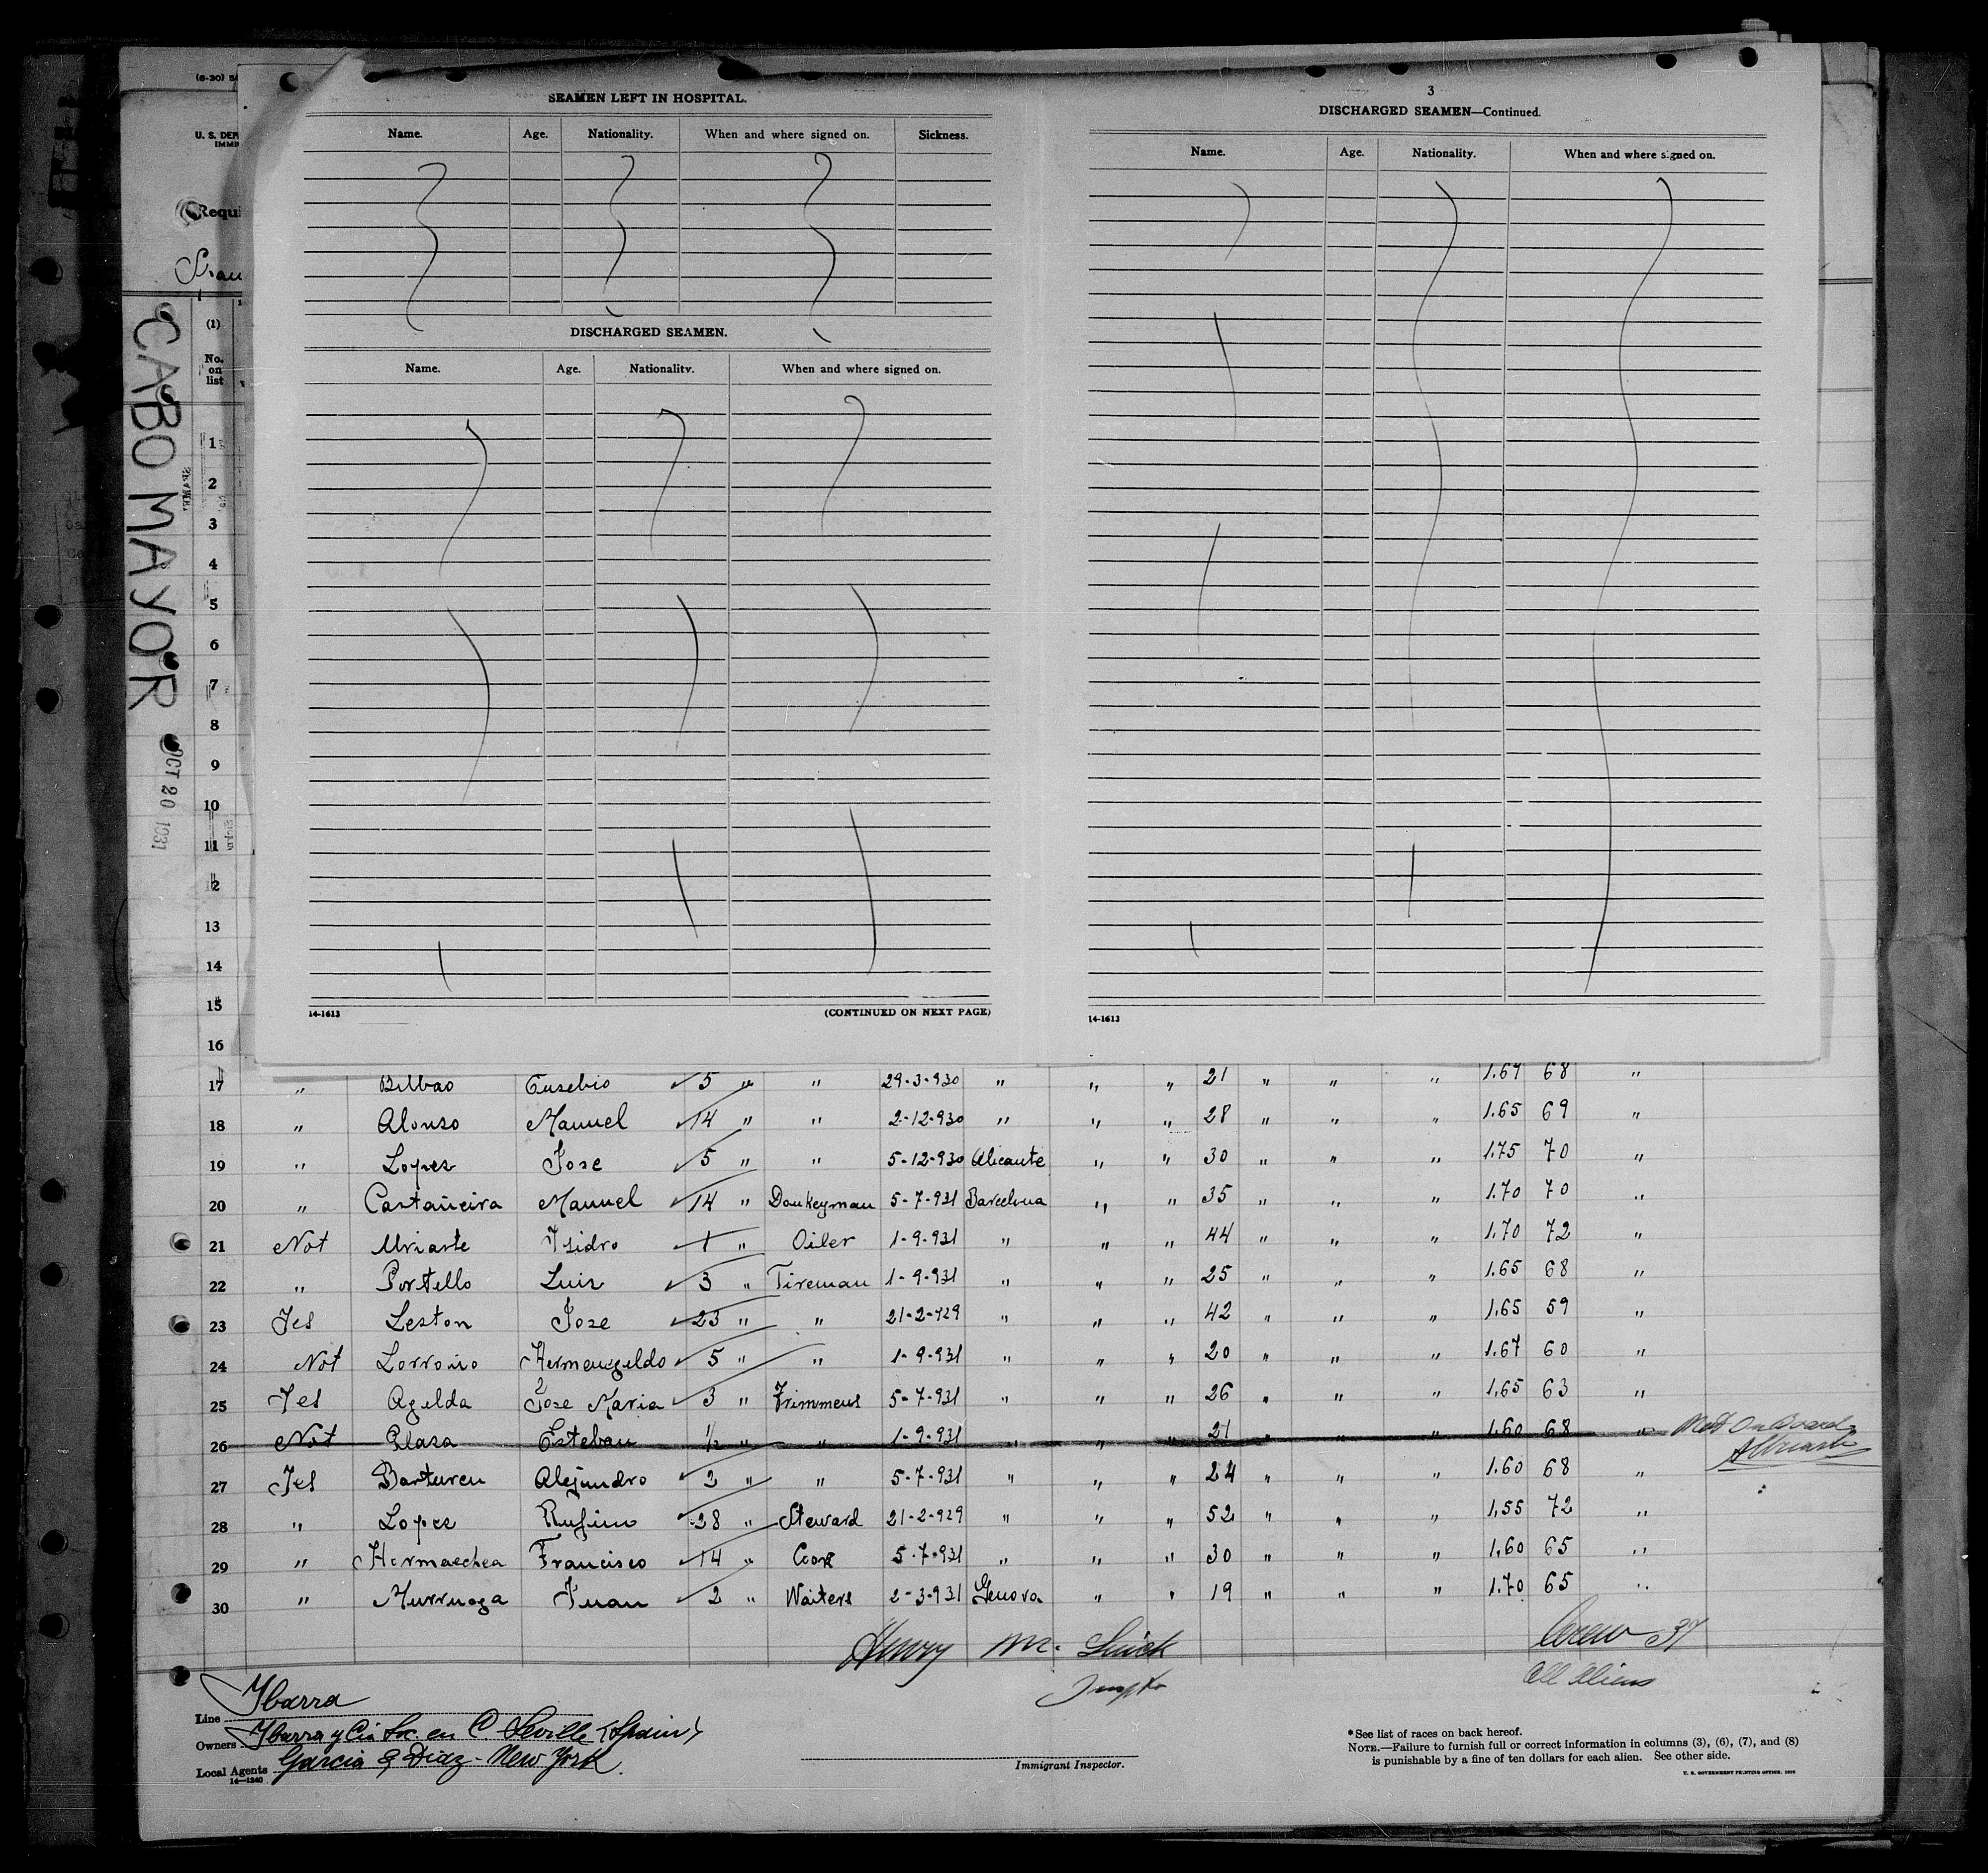 (6-30)
U. S. DEP
IMMI
Requi
CABO MAYOR
OCT 20 1931
(1)
No.
on
list
SEAMEN LEFT IN HOSPITAL.
Name. Age. Nationality. When and where signed on. Sickness.
DISCHARGED SEAMEN.
Name. Age. Nationality. When and where signed on.
14-1613 (CONTINUED ON NEXT PAGE)
3
DISCHARGED SEAMEN—Continued.
Name. Age. Nationality. When and where signed on.
14-1613
1
2
3
4
5
6
7
8
9
10
11
12
13
14
15
16
17 " Bilbao Eusebio 5 " " 29-3-930 " " " 21 " " " 1.67 68 "
18 " Alonso Manuel 14 " " 2-12-930 " " " 28 " " " 1.65 69 "
19 " Lopez Jose 5 " " 5-12-930 Alicante " " 30 " " " 1.75 70 "
20 " Castañeira Manuel 14 " Donkeyman 5-7-931 Barcelona " " 35 " " " 1.70 70 "
21 Not Uriarte Isidro 1 " Oiler 1-9-931 " " " 44 " " " 1.70 72 "
22 " Portello Luis 3 " Fireman 1-9-931 " " " 25 " " " 1.65 68 "
23 Yes Leston Jose 23 " " 21-2-929 " " " 42 " " " 1.65 59 "
24 Not Lorroño Hermengeldo 5 " " 1-9-931 " " " 20 " " " 1.67 60 "
25 Yes Agelda Jose Maria 3 " Trimmers 5-7-931 " " " 26 " " " 1.65 63 "
26 Not Plasa Esteban 1/2 " " 1-9-931 " " " 21 " " " 1.60 68 " Not On Board
27 Yes Barturen Alejandro 2 " " 5-7-931 " " " 24 " " " 1.60 68 "
28 " Lopez Rufino 28 " Steward 21-2-929 " " " 52 " " " 1.55 72 "
29 " Hormaechea Francisco 14 " Cook 5-7-931 " " " 30 " " " 1.60 65 "
30 " Murruaga Juan 2 " Waiters 2-3-931 Genova " " 19 " " " 1.70 65 "
Henry Crew 37
All Aliens
Line Ibarra
Owners Ibarra y Cia S. en C. Seville (Spain)
Local Agents Garcia & Diaz - New York
14—1240
Immigrant Inspector.
*See list of races on back hereof.
NOTE.—Failure to furnish full or correct information in columns (3), (6), (7), and (8)
is punishable by a fine of ten dollars for each alien. See other side.
U. S. GOVERNMENT PRINTING OFFICE: 1930